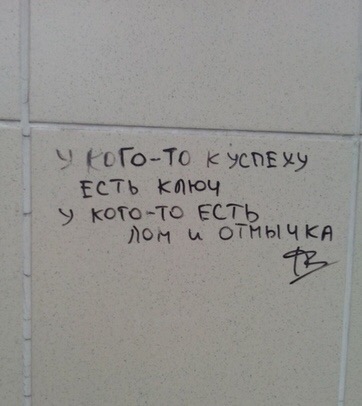 У КОГО-ТО К УСПЕХУ
ЕСТЬ КЛЮЧ
У КОГО-ТО ЕСТЬ
ЛОМ И ОТМЫЧКА